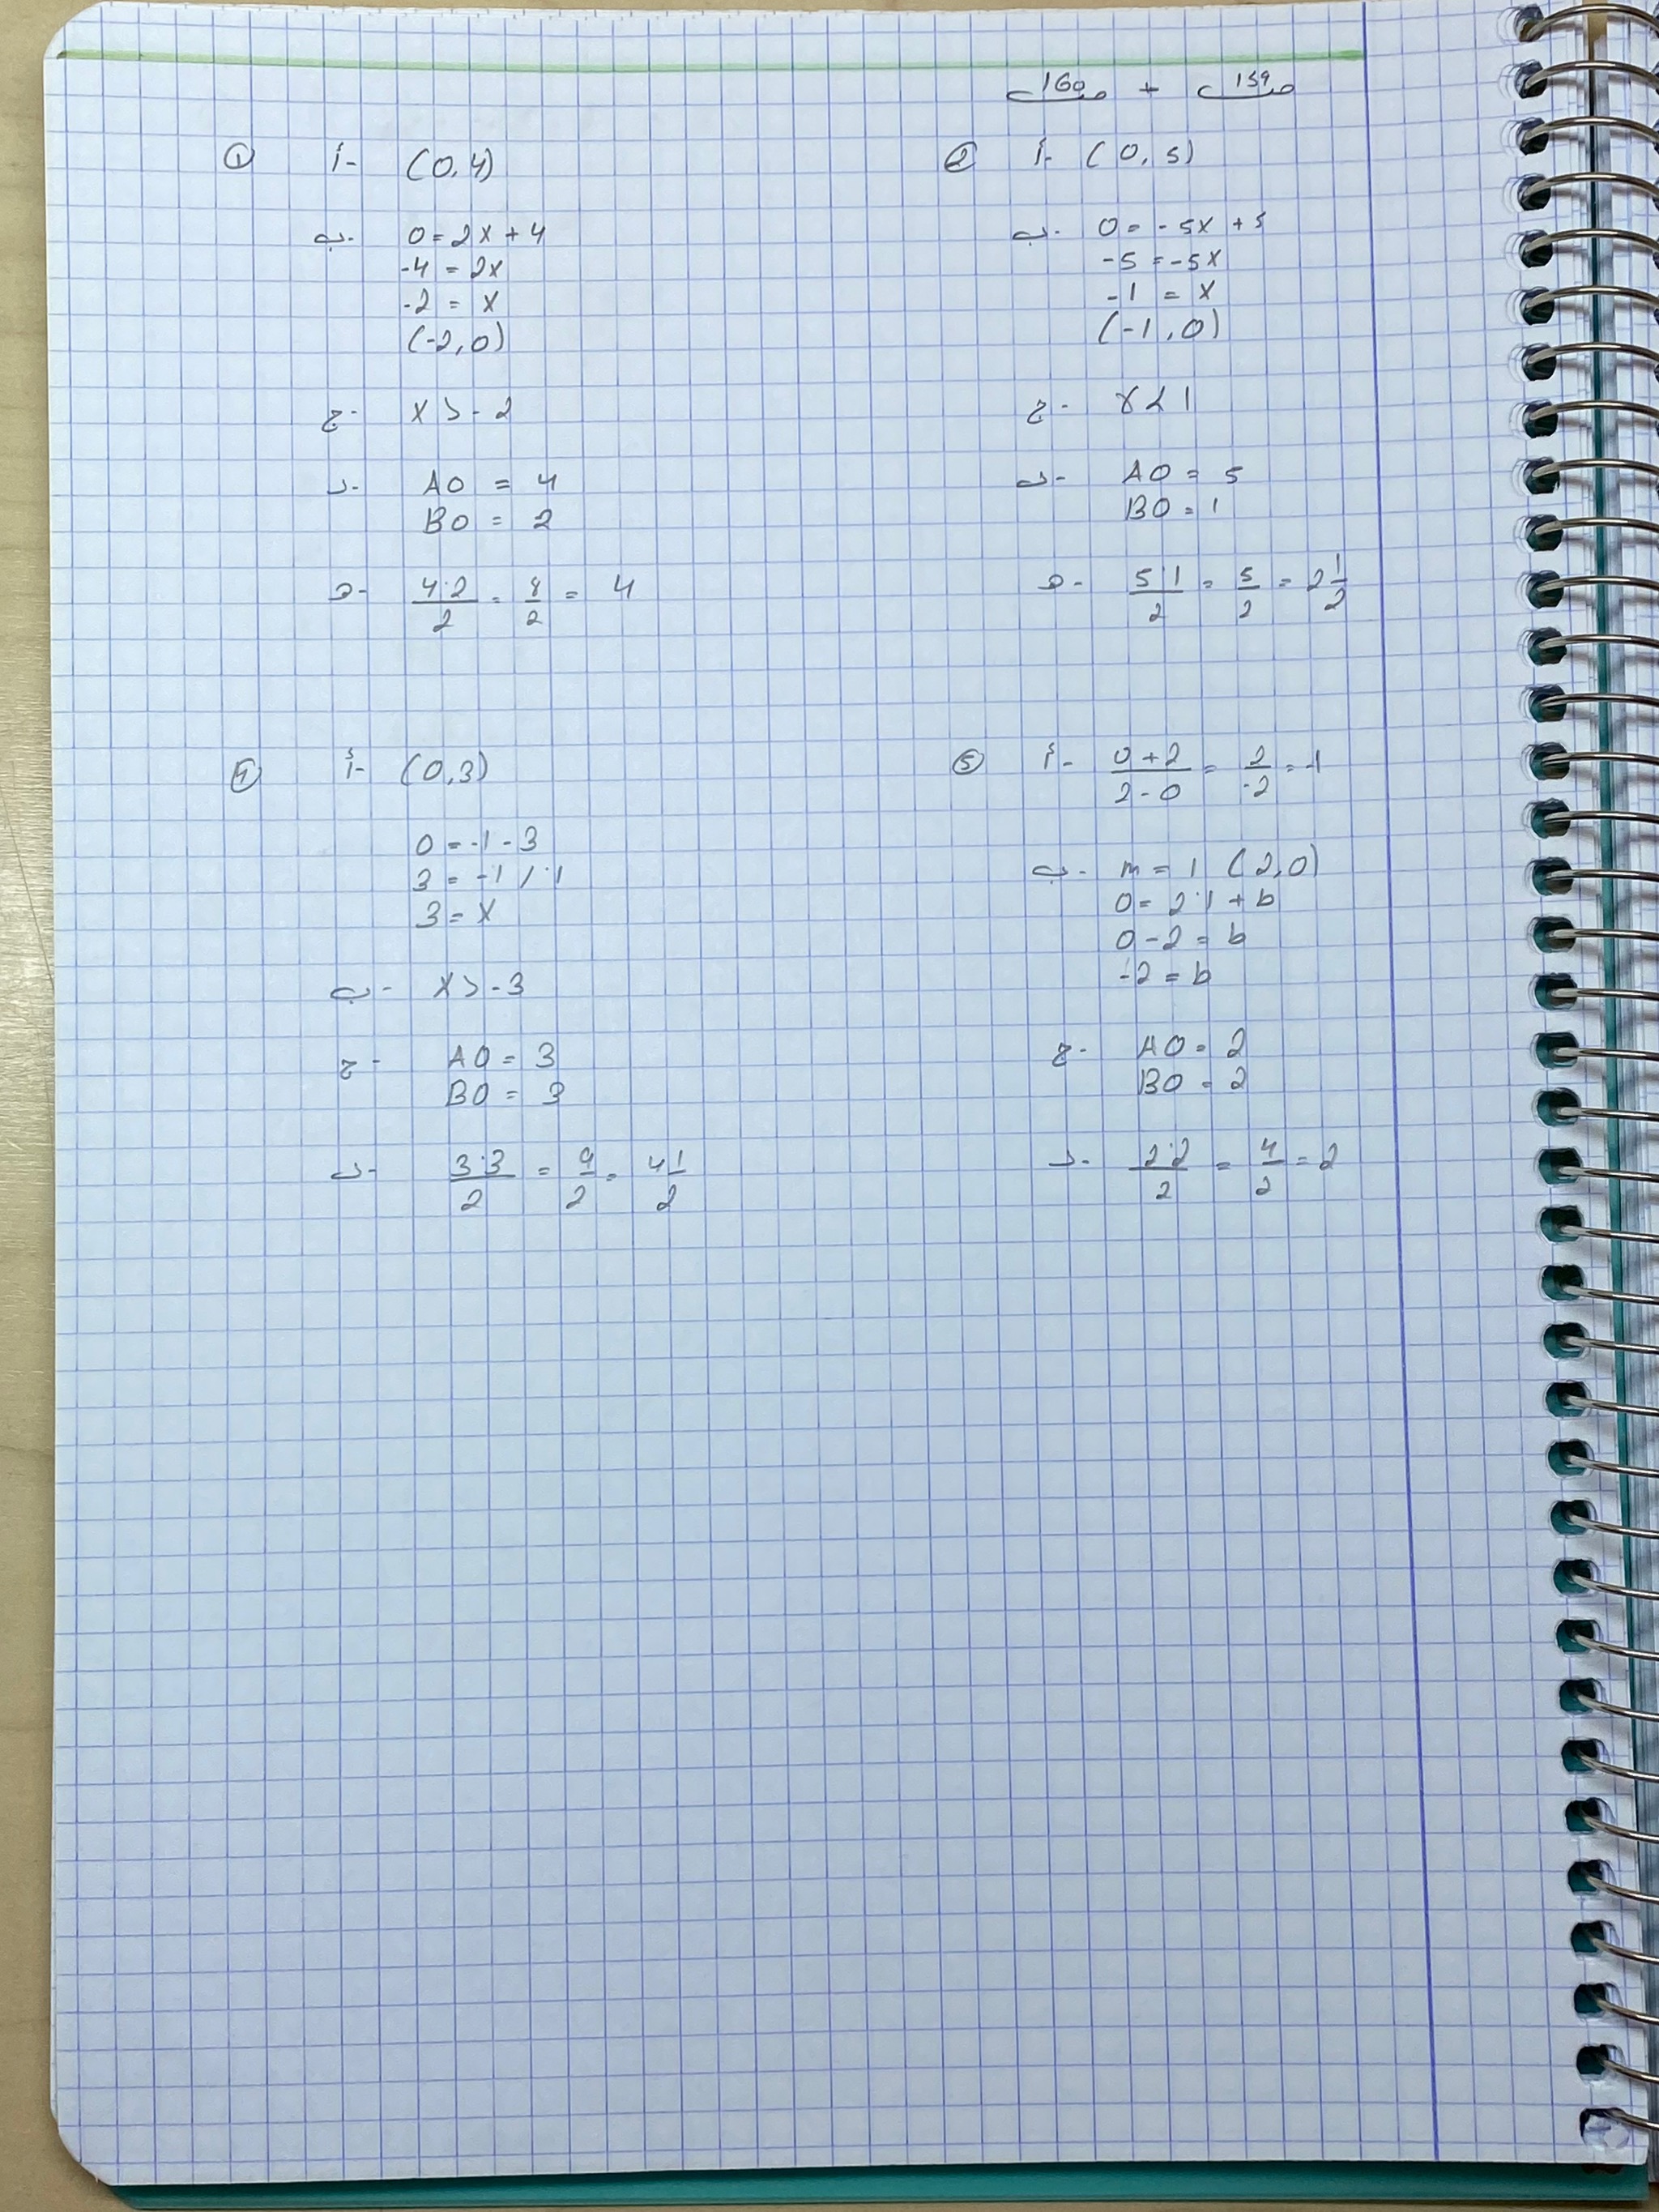 ص 159 + ص 160
① أ- (0,4)
ب- 0 = 2x + 4
-4 = 2x
-2 = x
(-2,0)
ج- x > -2
د- AO = 4
BO = 2
ه- 4·2/2 = 8/2 = 4
② أ- (0,5)
ب- 0 = -5x + 5
-5 = -5x
-1 = x
(-1,0)
ج- x < 1
د- AO = 5
BO = 1
ه- 5·1/2 = 5/2 = 2 1/2
④ أ- (0,3)
0 = -1 - 3
3 = -1 / ·1
3 = x
ب- x > -3
ج- AO = 3
BO = 3
د- 3·3/2 = 9/2 = 4 1/2
⑤ أ- 0+2/2-0 = 2/-2 = -1
ب- m = 1 (2,0)
0 = 2·1 + b
0 - 2 = b
-2 = b
ج- AO = 2
BO = 2
د- 2·2/2 = 4/2 = 2